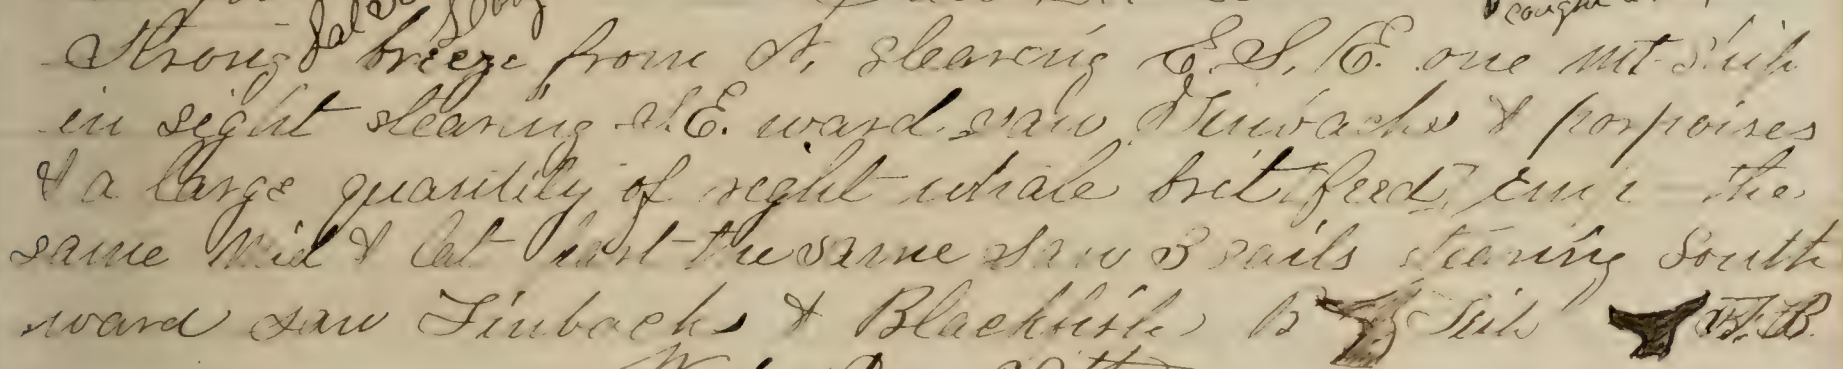 Strong breeze from N, stearing E.S.E. one mt ship
in sight stearing S.E. ward saw Finbacks & porpoises
& a large quantity of right whale brit feed, the
same Mid & lat part the same saw 3 sails stearing South
ward saw Finbacks & Blackfish B F.B.